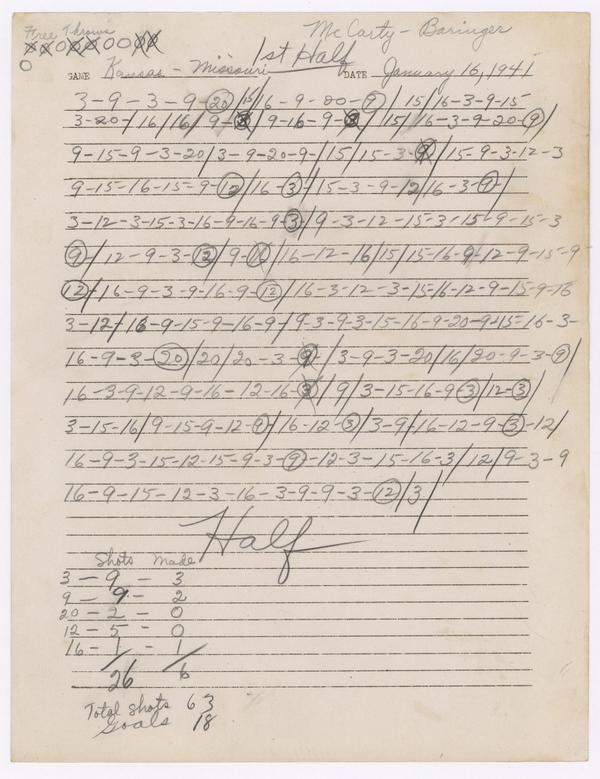 Free Throws
McCarty - Baringer
1st Half
GAME Kansas - Missouri DATE January 16, 1941
3-9-3-9-20/15/16-9-20-9/15/16-3-9-15
3-20/16/16/9-3/9-16-9-3/15/16-3-9-20-9/
9-15-9-3-20/3-9-20-9/15/15-3-9/15-9-3-12-3
9-15-16-15-9-12/16-3/15-3-9-12/16-3-9/
3-12-3-15-3-16-9-16-9-3/9-3-12-15-3-15-9-15-3
9/12-9-3-12/9-16/16-12-16/15/15-16-9-12-9-15-9
12/16-9-3-9-16-9-12/16-3-12-3-15-16-12-9-15-9-16
3-12/16-9-15-9-16-9/9-3-9-3-15-16-9-20-9-15-16-3-
16-9-3-20/20/20-3-9/3-9-3-20/16/20-9-3-9/
16-3-9-12-9-16-12-16-3/9/3-15-16-9-3/12-3/
3-15-16/9-15-9-12-9/16-12-3/3-9/16-12-9-3-12/
16-9-3-15-12-15-9-3-9-12-3-15-16-3/12/9-3-9
16-9-15-12-3-16-3-9-9-3-12/3/
Half
Shots Made
3 - 9 - 3
9 - 9 - 2
20 - 2 - 0
12 - 5 - 0
16 - 1 - 1
26 6
Total Shots 63
Goals 18